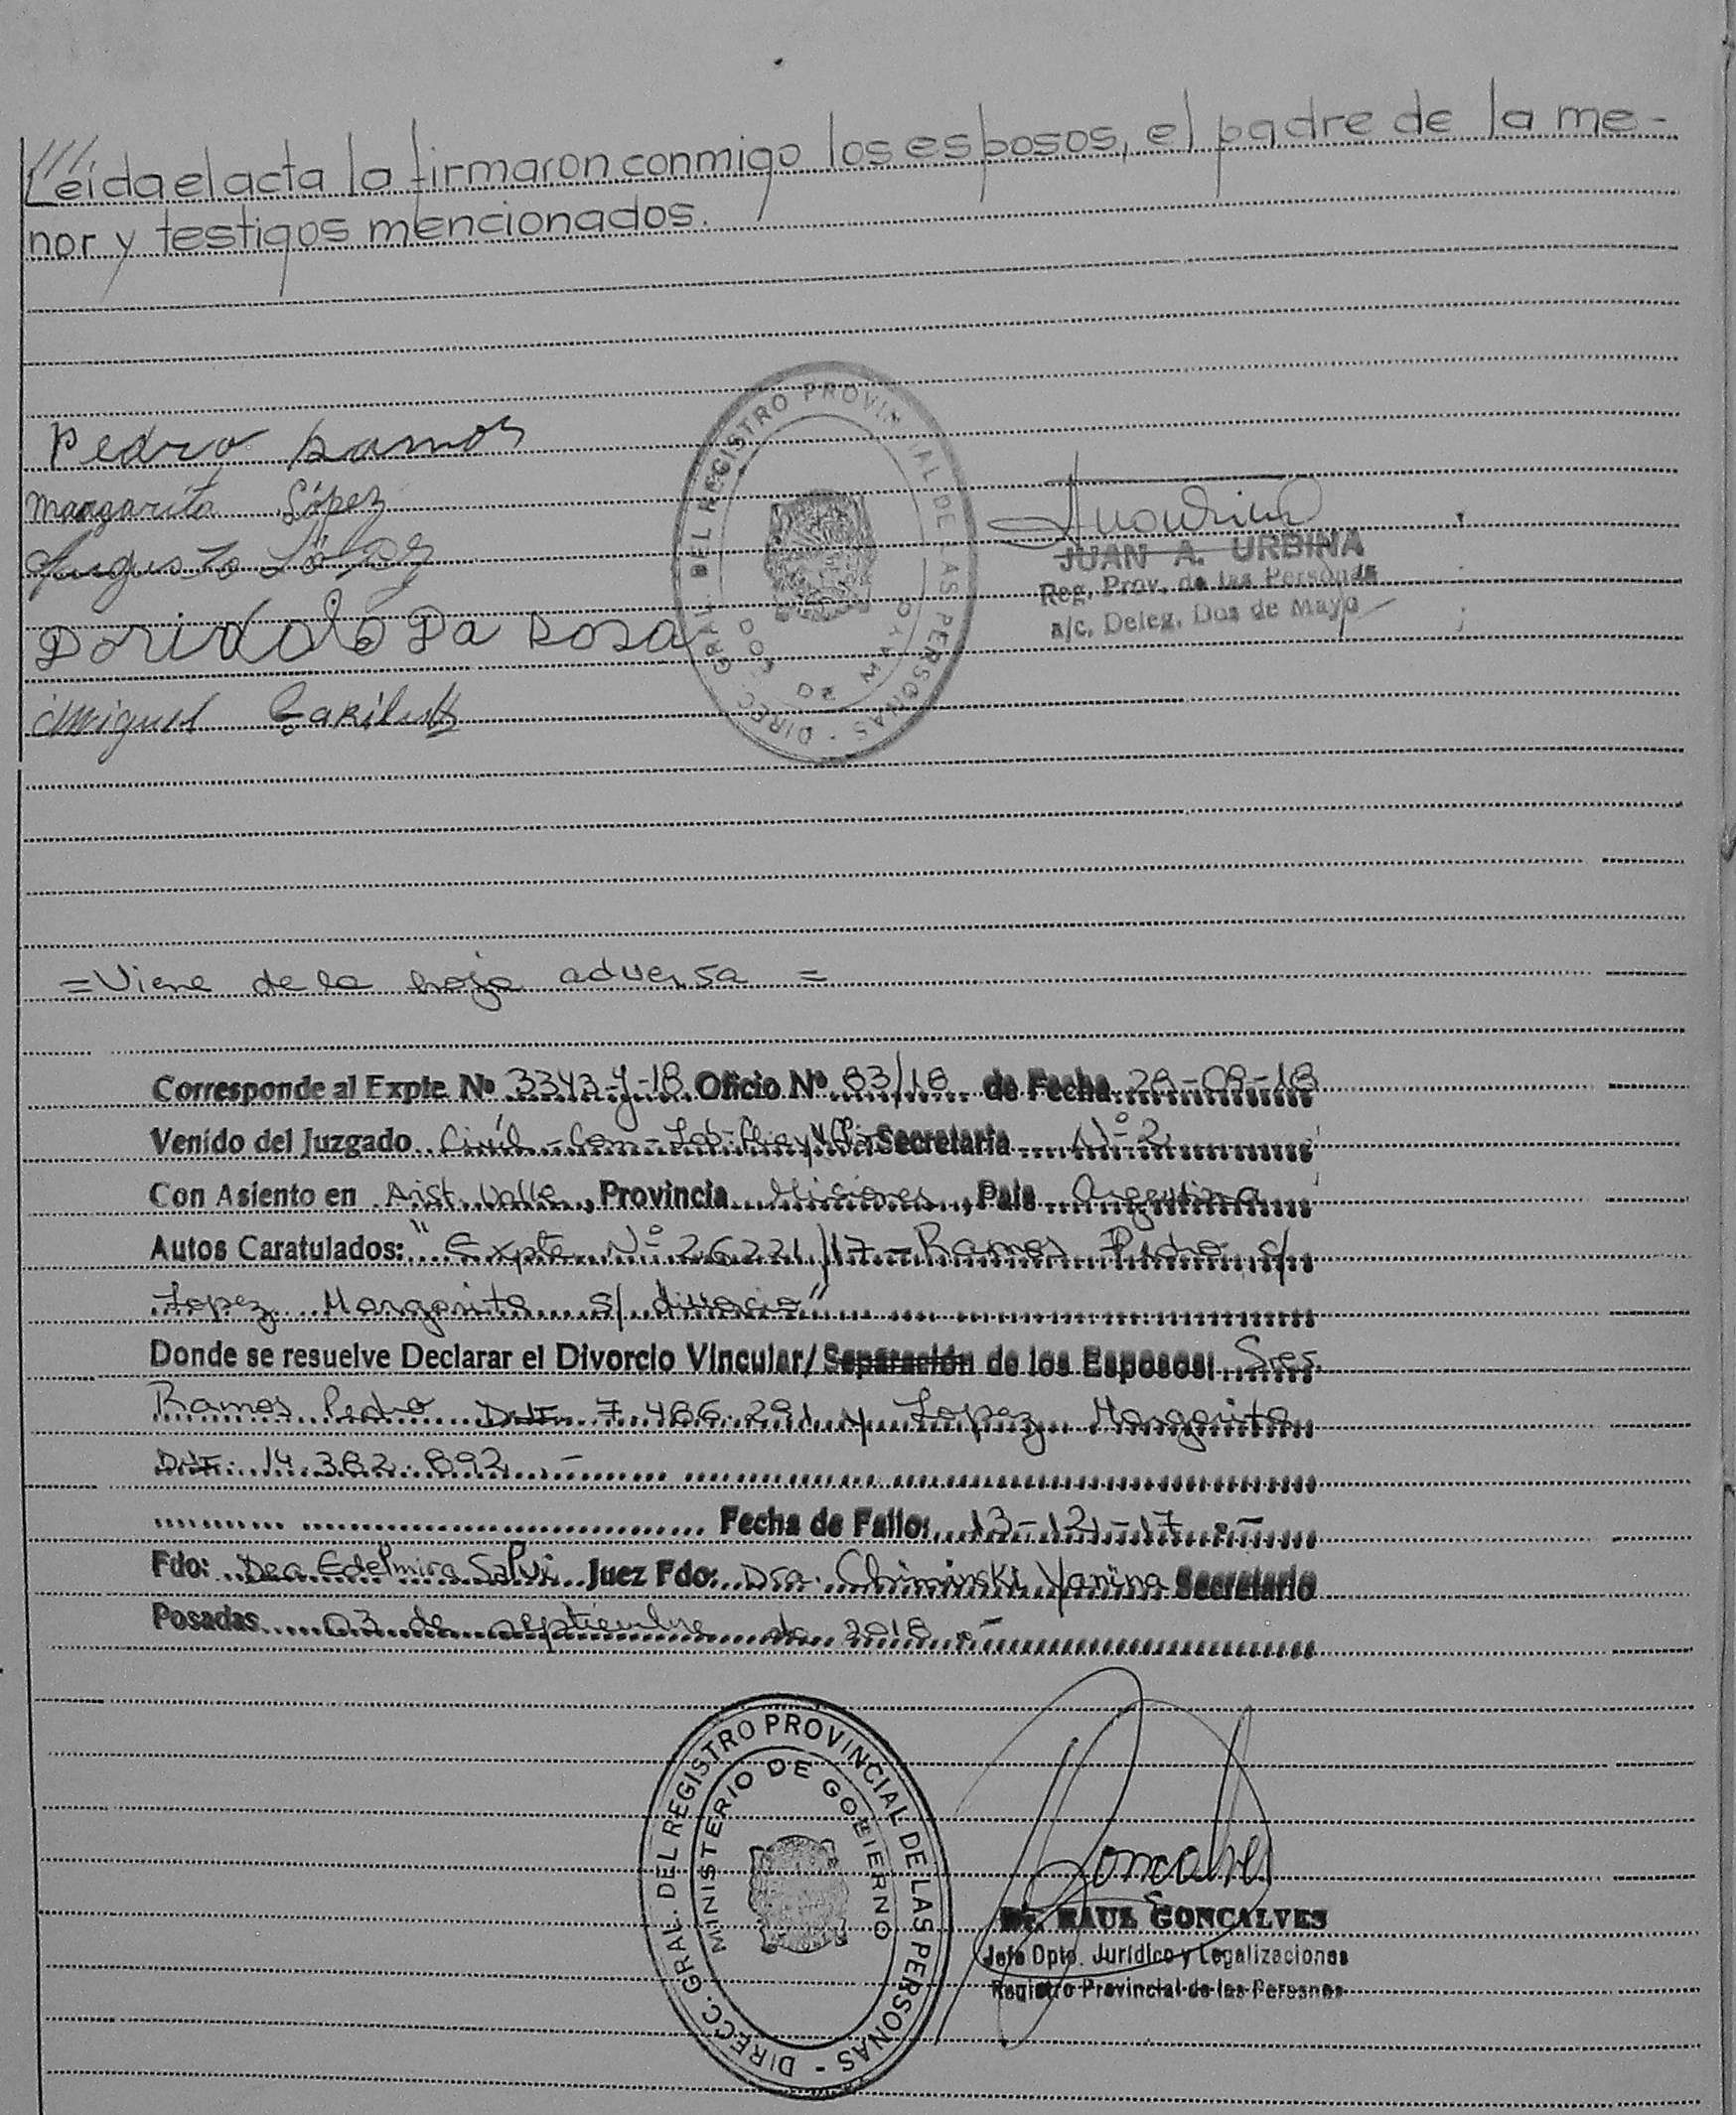 Leída el acta la firmaron conmigo los esposos, el padre de la me-
nor y testigos mencionados.
Pedro Ramos
Margarita López
Augusto López
Dorivaldo Da Rosa
Miguel
DIREC. GRAL. DEL REGISTRO PROVINCIAL DE LAS PERSONAS
DOS DE MAYO
JUAN A. URBINA
Reg. Prov. de las Personas
a/c. Deleg. Dos de Mayo
=Viene de la hoja adversa =
Corresponde al Expte. Nº 3343-y-18 Oficio Nº 83/18 de Fecha 28-08-18
Venido del Juzgado Civil-Com-Lab-Flia y Secretaría Nº 2
Con Asiento en Arist. Valle, Provincia Misiones, País Argentina
Autos Caratulados: "Expte Nº 26221/17-Ramos Pedro c/
Lopez Margarita s/ divorcio"
Donde se resuelve Declarar el Divorcio Vincular/Separación de los Esposos: Sres.
Ramos Pedro DNI 7.486.291 y Lopez Margarita
DNI 14.382.892.-
Fecha de Fallo: 13-12-17.-
Fdo: Dra Edelmira Salvi Juez Fdo: Dra. Chiminski Yanina Secretario
Posadas 03 de septiembre de 2018.-
DIRECC. GRAL. DEL REGISTRO PROVINCIAL DE LAS PERSONAS
MINISTERIO DE GOBIERNO
Goncalves
Dr. RAUL GONCALVES
Jefe Dpto. Jurídico y Legalizaciones
Registro Provincial de las Personas